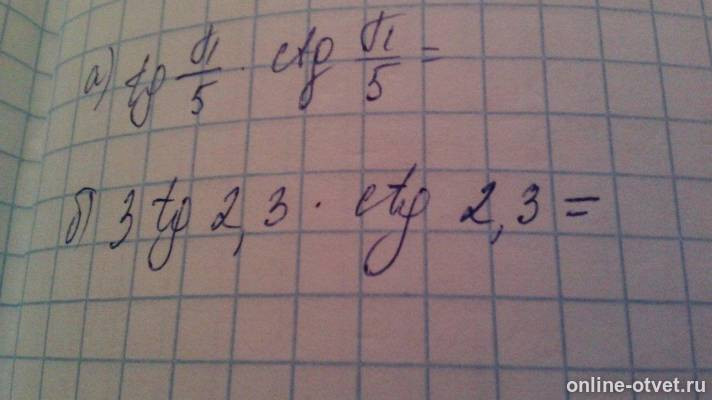 а) tg π/5 · ctg π/5 =
б) 3 tg 2,3 · ctg 2,3 =
online-otvet.ru